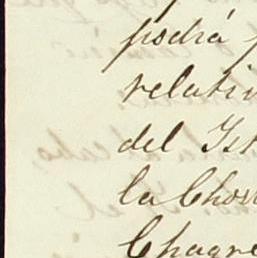 podrá
relati
del Ist
la Chor
Chagre